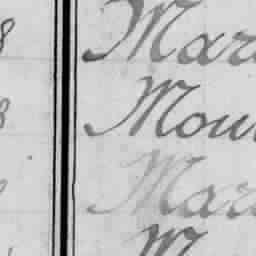 8 Mar
8 Mou
Mar
M